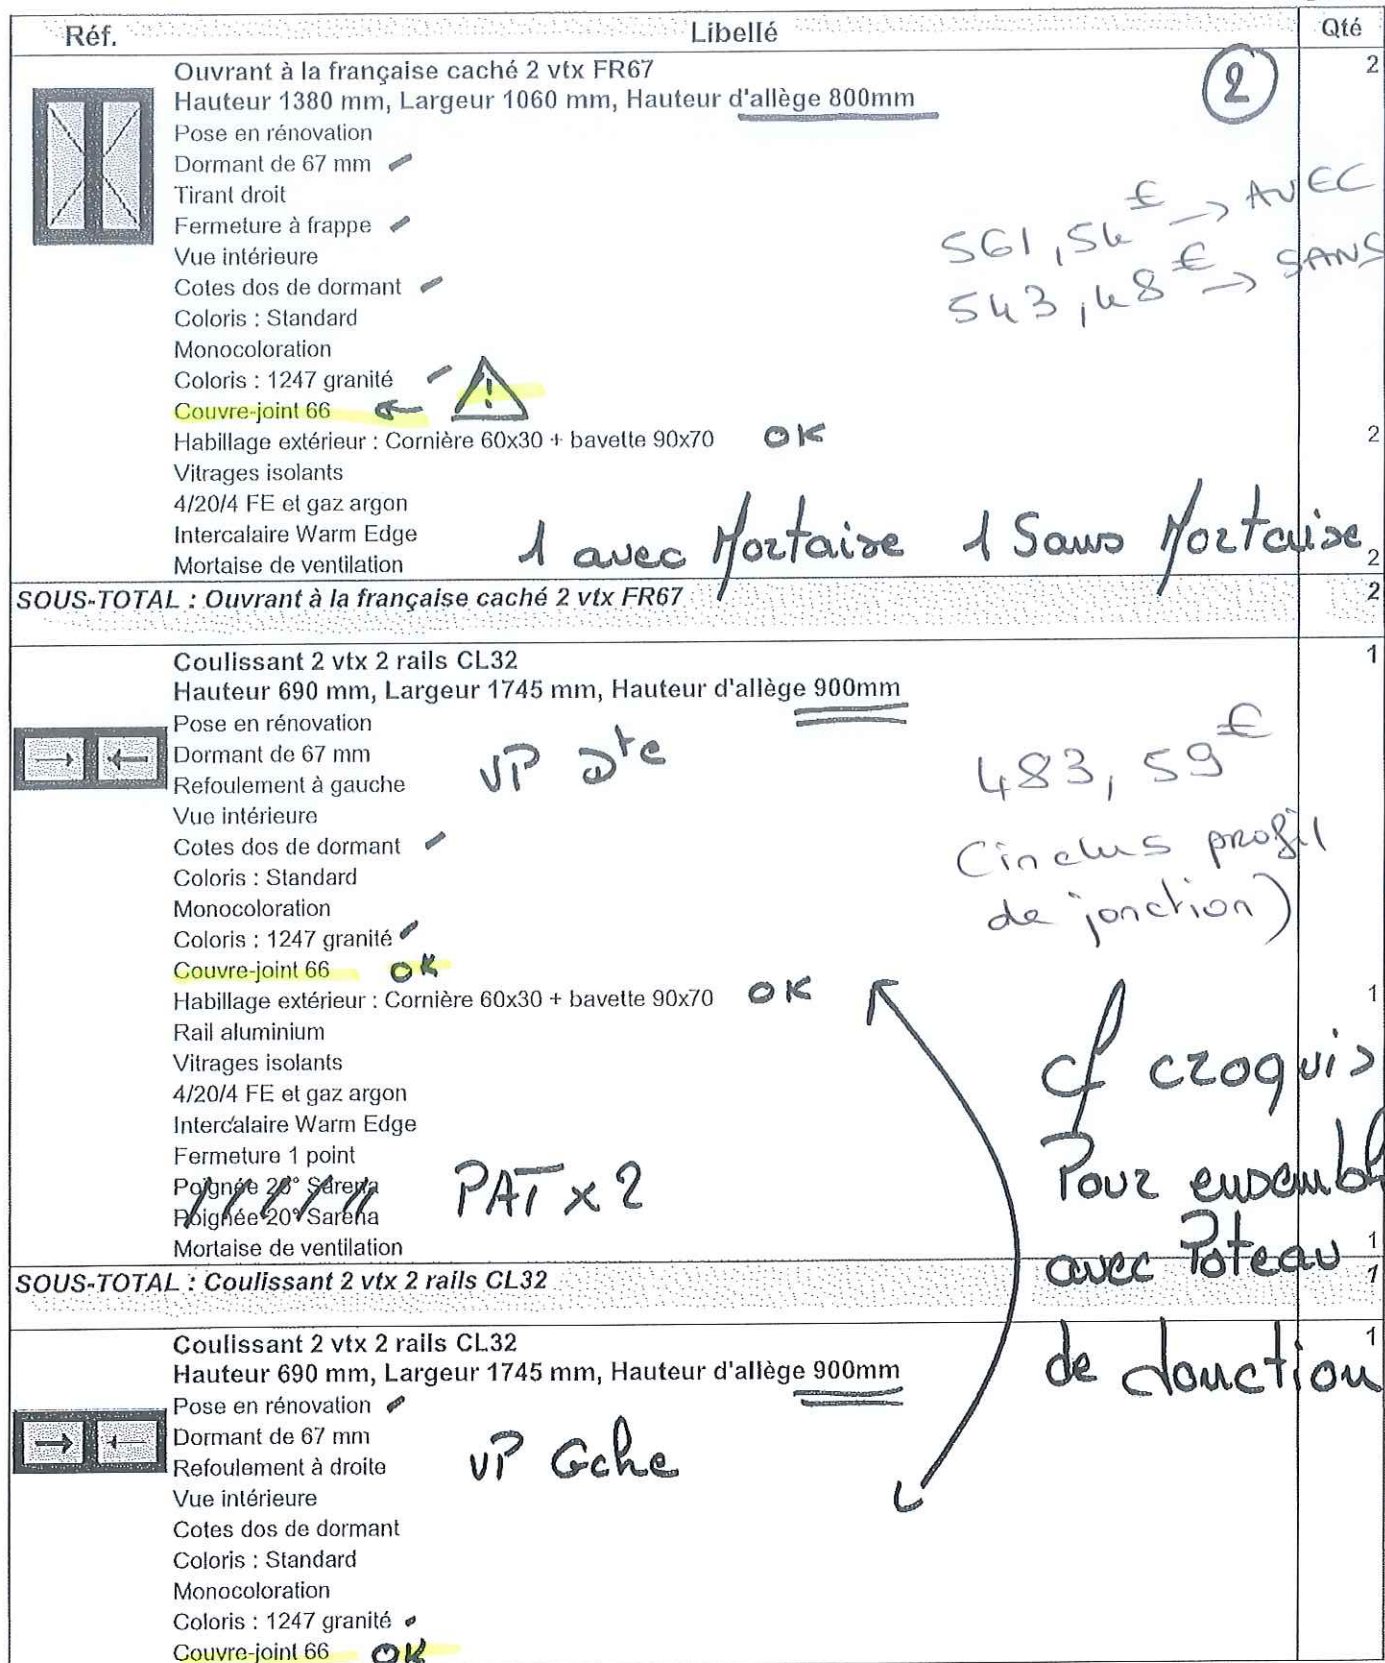 Réf. Libellé Qté
Ouvrant à la française caché 2 vtx FR67 2
2
Hauteur 1380 mm, Largeur 1060 mm, Hauteur d'allège 800mm
Pose en rénovation
Dormant de 67 mm
Tirant droit
Fermeture à frappe
561,54€ → AVEC
Vue intérieure
543,48€ → SANS
Cotes dos de dormant
Coloris : Standard
Monocoloration
Coloris : 1247 granité
!
Couvre-joint 66 ←
Habillage extérieur : Cornière 60x30 + bavette 90x70 OK 2
Vitrages isolants
4/20/4 FE et gaz argon
Intercalaire Warm Edge
1 avec Mortaise 1 Sans Mortaise
Mortaise de ventilation 2
SOUS-TOTAL : Ouvrant à la française caché 2 vtx FR67 2
Coulissant 2 vtx 2 rails CL32 1
Hauteur 690 mm, Largeur 1745 mm, Hauteur d'allège 900mm
Pose en rénovation
Dormant de 67 mm
VP Dte
483,59€
Refoulement à gauche
Vue intérieure
Cotes dos de dormant
(inclus profil
Coloris : Standard
de jonction)
Monocoloration
Coloris : 1247 granité
Couvre-joint 66 OK
Habillage extérieur : Cornière 60x30 + bavette 90x70 OK 1
Rail aluminium
Vitrages isolants
cf croquis
4/20/4 FE et gaz argon
Intercalaire Warm Edge
Fermeture 1 point
Poignée 20° Sarena
PAT x 2
Pour ensembl
Poignée 20° Sarena
Mortaise de ventilation 1
avec Poteau
SOUS-TOTAL : Coulissant 2 vtx 2 rails CL32 1
Coulissant 2 vtx 2 rails CL32 1
de Jonction
Hauteur 690 mm, Largeur 1745 mm, Hauteur d'allège 900mm
Pose en rénovation
Dormant de 67 mm
VP Gche
Refoulement à droite
Vue intérieure
Cotes dos de dormant
Coloris : Standard
Monocoloration
Coloris : 1247 granité
Couvre-joint 66 OK